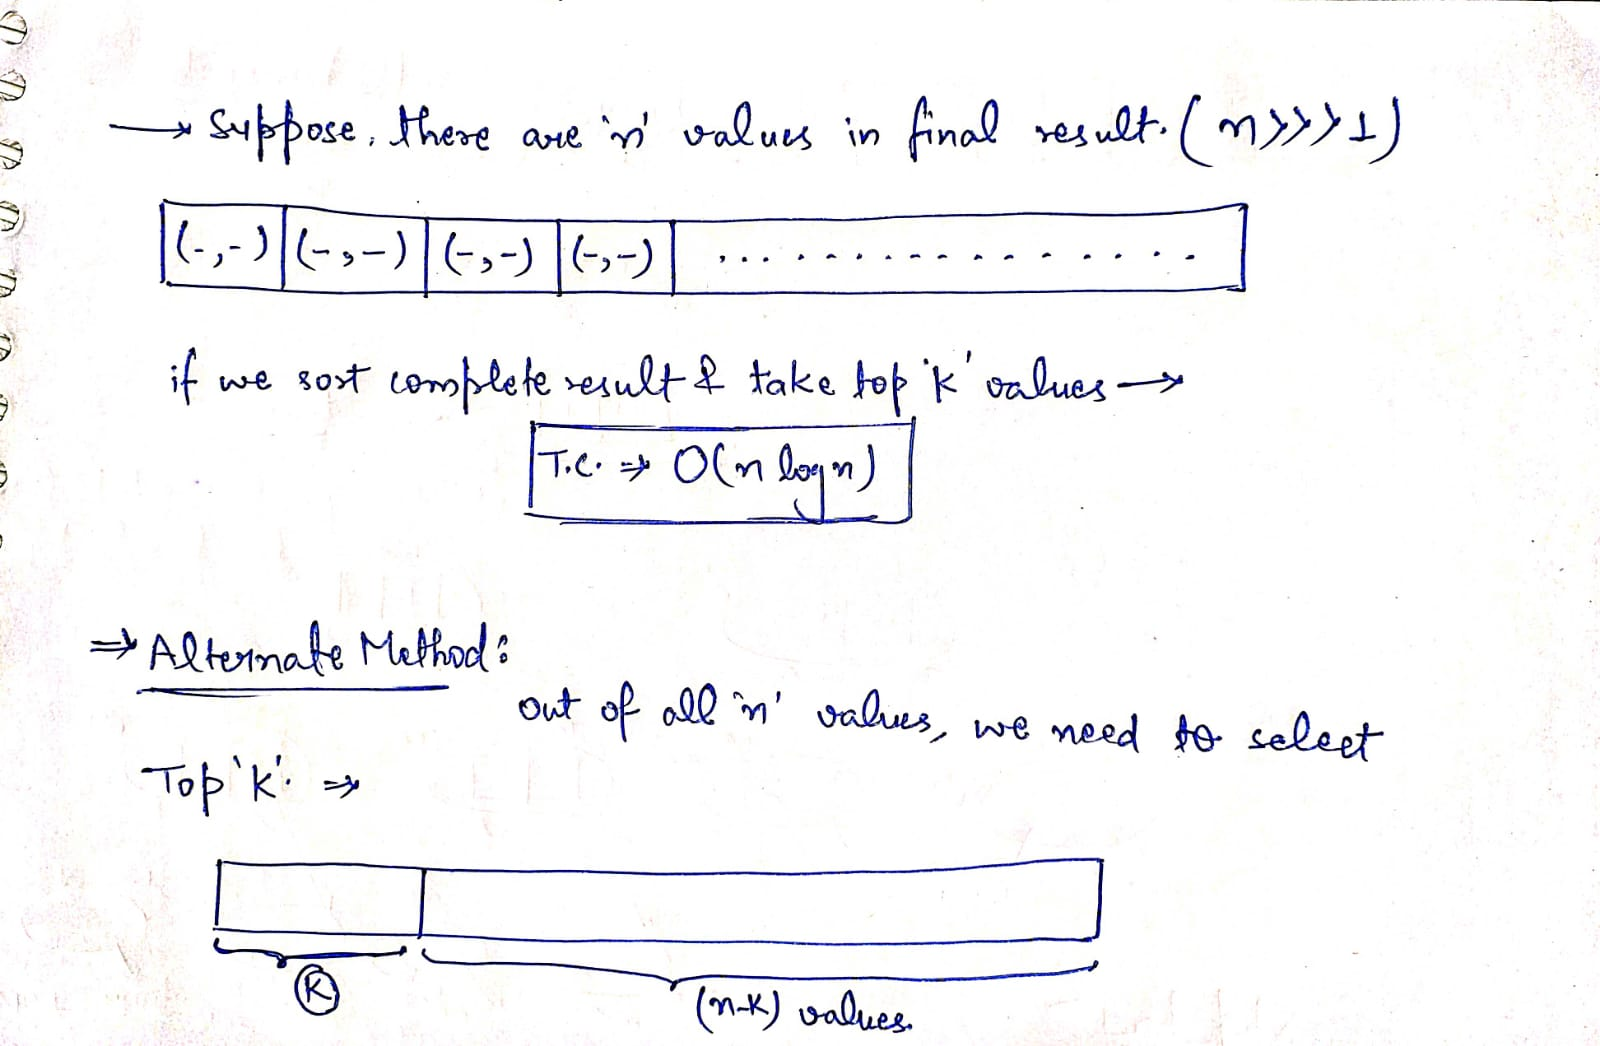 → Suppose, there are 'n' values in final result. (n>>>>1)
(-,-) (-,-) (-,-) (-,-) ...................
if we sort complete result & take top 'k' values →
T.C. ⇒ O(n log n)
⇒ Alternate Method:
out of all 'n' values, we need to select
Top 'k'. ⇒
K
(n-k) values.